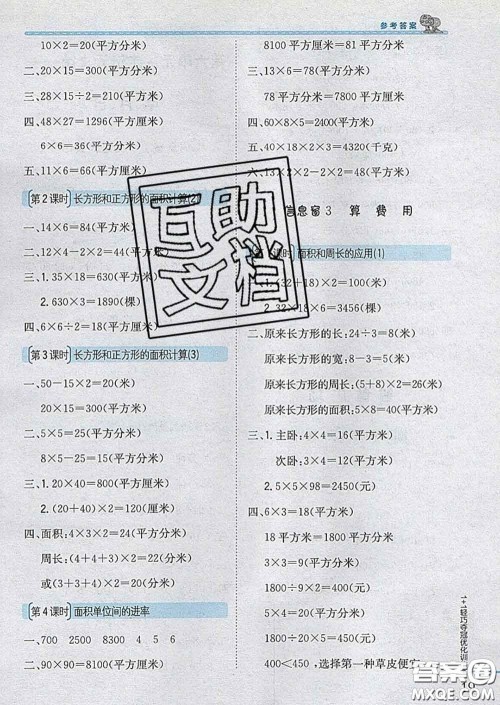 参考答案
10×2=20(平方分米)
二、20×15=300(平方分米)
三、28×15÷2=210(平方米)
四、48×27=1296(平方厘米)
6×6=36(平方分米)
五、11×6=66(平方厘米)
第2课时 长方形和正方形的面积计算(2)
一、14×6=84(平方米)
二、12×4-4=44(平方分米)
三、1.35×18=630(平方米)
2.630×3=1890(棵)
四、6×6÷2=18(平方米)
第3课时 长方形和正方形的面积计算(3)
一、50-15×2=20(米)
20×15=300(平方米)
二、5×5=25(平方分米)
8×5-25=15(平方分米)
三、1.20×40=800(平方米)
2.(20+40)×2=120(米)
四、面积:4×3×2=24(平方分米)
周长:(4+4+3)×2=22(分米)
或(3+3+4)×2=20(分米)
第4课时 面积单位间的进率
一、700 2500 8300 4 5 6
二、90×90=8100(平方厘米)
8100平方厘米=81平方分米
三、13×6=78(平方米)
78平方分米=7800平方厘米
四、60×8×5=2400(平方分米)
五、40×18×2×3=4320(千克)
六、13×2×2-2×2=48(平方厘米)
信息窗3 算费用
课时 面积和周长的应用(1)
一、1.(32+18)×2=100(米)
2.32×18×6=3456(棵)
二、原来长方形的长:24÷3=8(米)
原来长方形的宽:8-3=5(米)
原来长方形的周长:(5+8)×2=26(米)
原来长方形的面积:5×8=40(平方米)
三、1.主卧:4×4=16(平方米)
次卧:3×4=12(平方米)
2.5×5×98=2450(元)
四、6×3=18(平方米)
18平方米=1800平方分米
3×3=9(平方分米)
1800÷9×2=400(元)
2×10=20(平方分米)
1800÷20×5=450(元)
400<450 选择第一种草皮便宜
1+1轻巧夺冠优化训
互助文档
答案圈
MXQE.COM